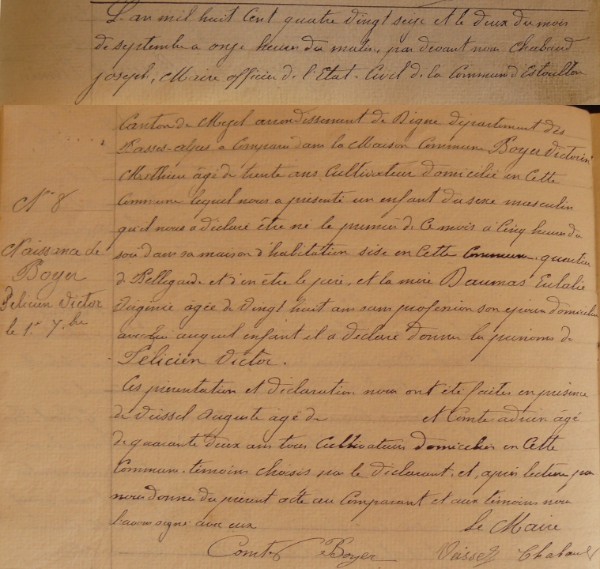 L'an mil huit cent quatre vingt seize et le deux du mois
de septembre a onze heures du matin, par devant nous Chabaud
Joseph, Maire officier de l'Etat-Civil de la Commune d'Estoublon
Canton de Mezel arrondissement de Digne département des
Basses-alpes a comparu dans la Maison Commune Boyer Victorin
Matthieu âgé de trente ans Cultivateur domicilié en Cette
Commune lequel nous a présenté un enfant du sexe masculin
qu'il nous a déclaré être né le premier de Ce mois à Cinq heures du
soir dans sa maison d'habitation sise en Cette Commune quartier
de Bellegarde et d'en être le père, et la mère Daumas Eulalie
Virginie agée de Vingt huit ans sans profession son épouse domiciliée
avec lui auquel enfant il a déclaré donner les prénoms de
Félicien Victor.
Ces présentation et déclaration nous ont été faites en présence
de Vuissel Auguste agé de et Comte adrien âgé
de quarante deux ans tous Cultivateurs domiciliés en Cette
Commune témoins choisis par le déclarant, et, après lecture par
nous donnée du présent acte au Comparant et aux témoins nous
l'avons signé avec eux Le Maire
Comte Boyer Vuissel Chabaud
N° 8
Naissance de
Boyer
Félicien Victor
le 1er 7bre